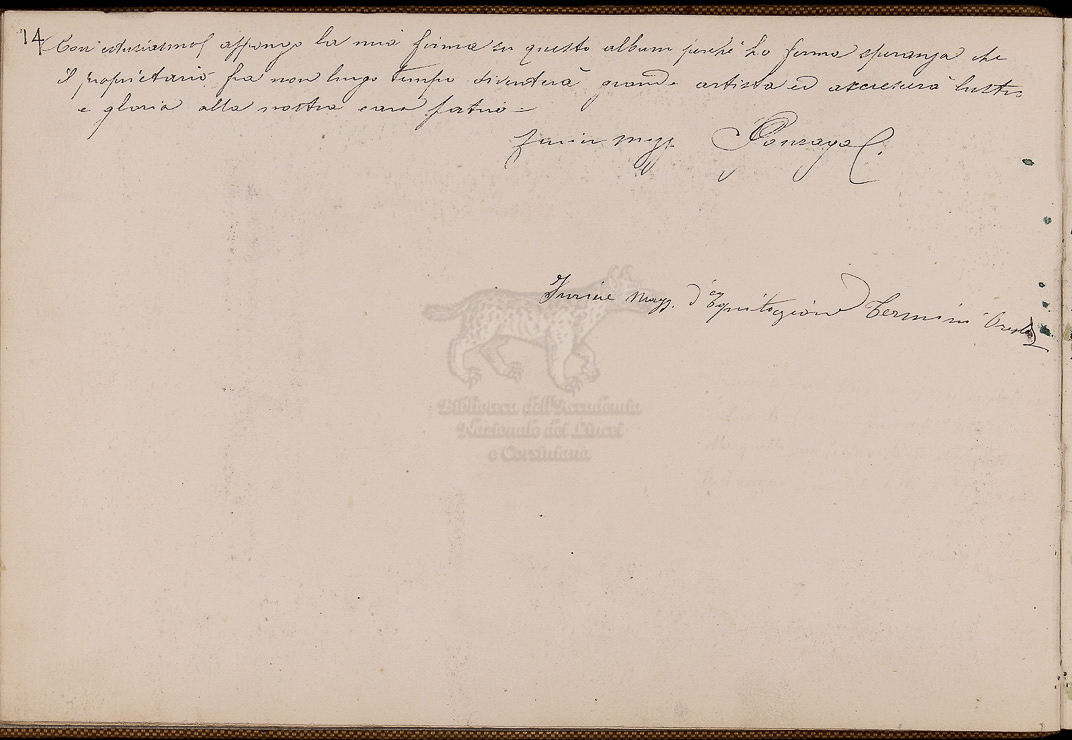 14
Con entusiasmo appongo la mia firma su questo album perché ho ferma speranza che
il proprietario, fra non lungo tempo diventerà grande artista ed accrescerà lustro
e gloria alla nostra cara patria =
furier magg. Gonzaga C.
Furiere Magg. d'Equitazione Termini Oreste
Biblioteca dell'Accademia
Nazionale dei Lincei
e Corsiniana